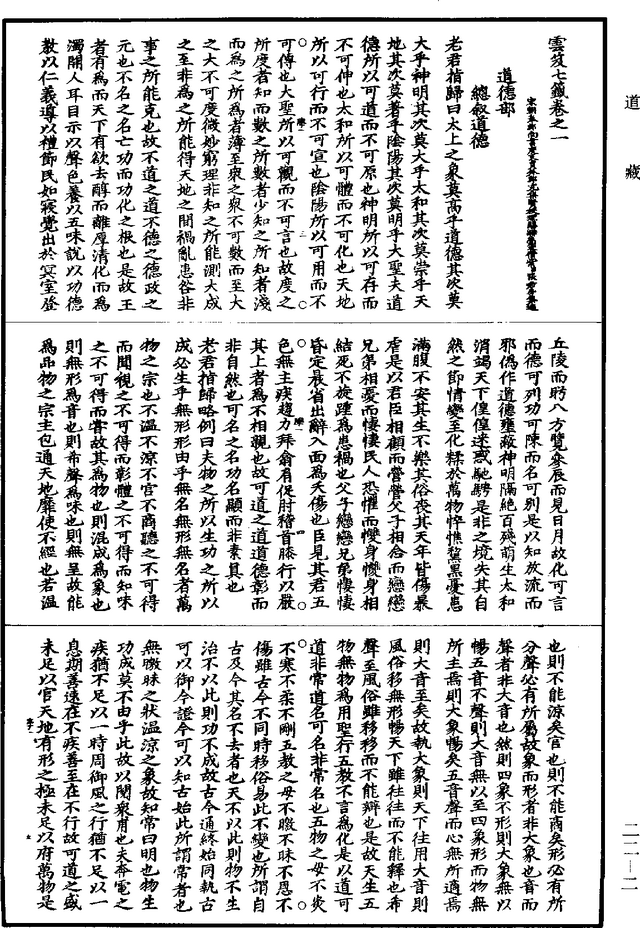 道藏
雲笈七籤卷之一
道德部
總敘道德
老君指歸曰太上之象莫高乎道德其次莫
大乎神明其次莫大乎太和其次莫崇乎天
地其次莫著乎陰陽其次莫明乎大聖夫道
德所以可道而不可原也神明所以可存而
不可伸也太和所以可體而不可化也天地
所以可行而不可宣也陰陽所以可用而不
可傳也大聖所以可觀而不可言也故度之
所度者知而數之所數者少知之所知者淺
而為之所為者薄至眾之眾不可數而至大
之大不可度微妙窮理非知之所能測大成
之至非為之所能得天地之間禍亂患咎非
事之所能克也故不道之道不德之德政之
元也不名之名亡功而功化之根也是故王
者有為而天下有欲去醇而離厚清化而為
濁開人耳目示以聲色養以五味說以功德
教以仁義導以禮節民如寢覺出於冥室登
丘陵而盻八方覽參辰而見日月故化可言
而德可列功可陳而名可別是以知放流而
邪偽作道德壅蔽神明隔絕百殘萌生太和
消竭天下徨徨迷惑馳騁是非之境失其自
然之節情變至化糅於萬物悴憔黧黑憂患
滿腹不安其生不樂其俗喪其天年皆傷暴
虐是以君臣相顧而營營父子相念而戀戀
兄弟相憂而悽悽民人恐懼而慞身慞身相
結死不旋踵為患禍也父子戀戀兄弟悽悽
昏定晨省出辭入面為夭傷也臣見其君五
色無主疾趨力拜翕肩促肘稽首膝行以嚴
其上者為不相親也故可道之道道德彰而
非自然也可名之名功名顯而非素真也
老君指歸略例曰夫物之所以生功之所以
成必生乎無形由乎無名無形無名者萬
物之宗也不溫不涼不宮不商聽之不可得
而聞視之不可得而彰體之不可得而知味
之不可得而嘗故其為物也則混成為象也
則無形為音也則希聲為味也則無呈故能
為品物之宗主包通天地靡使不經也若溫
也則不能涼矣宮也則不能商矣形必有所
分聲必有所屬故象而形者非大象也音而
聲者非大音也然則四象不形則大象無以
暢五音不聲則大音無以至四象形而物無
所主焉則大象暢矣五音聲而心無所適焉
則大音至矣故執大象則天下往用大音則
風俗移無形暢天下雖往往而不能釋也希
聲至風俗雖移移而不能辯也是故天生五
物無物為用聖行五教不言為化是以道可
道非常道名可名非常名也五物之母不炎
不寒不柔不剛五教之母不皦不昧不恩不
傷雖古今不同時移俗易此不變也所謂自
古及今其名不去者也天不以此則物不生
治不以此則功不成故古今通終始同執古
可以御今證今可以知古始此所謂常者也
無皦昧之狀溫涼之象故知常曰明也物生
功成莫不由乎此故以閱眾甫也夫奔電之
疾猶不足以一時周御風之行猶不足以一
息期善速在不疾善至在不行故可道之盛
未足以官天地有形之極未足以府萬物是
二二一二